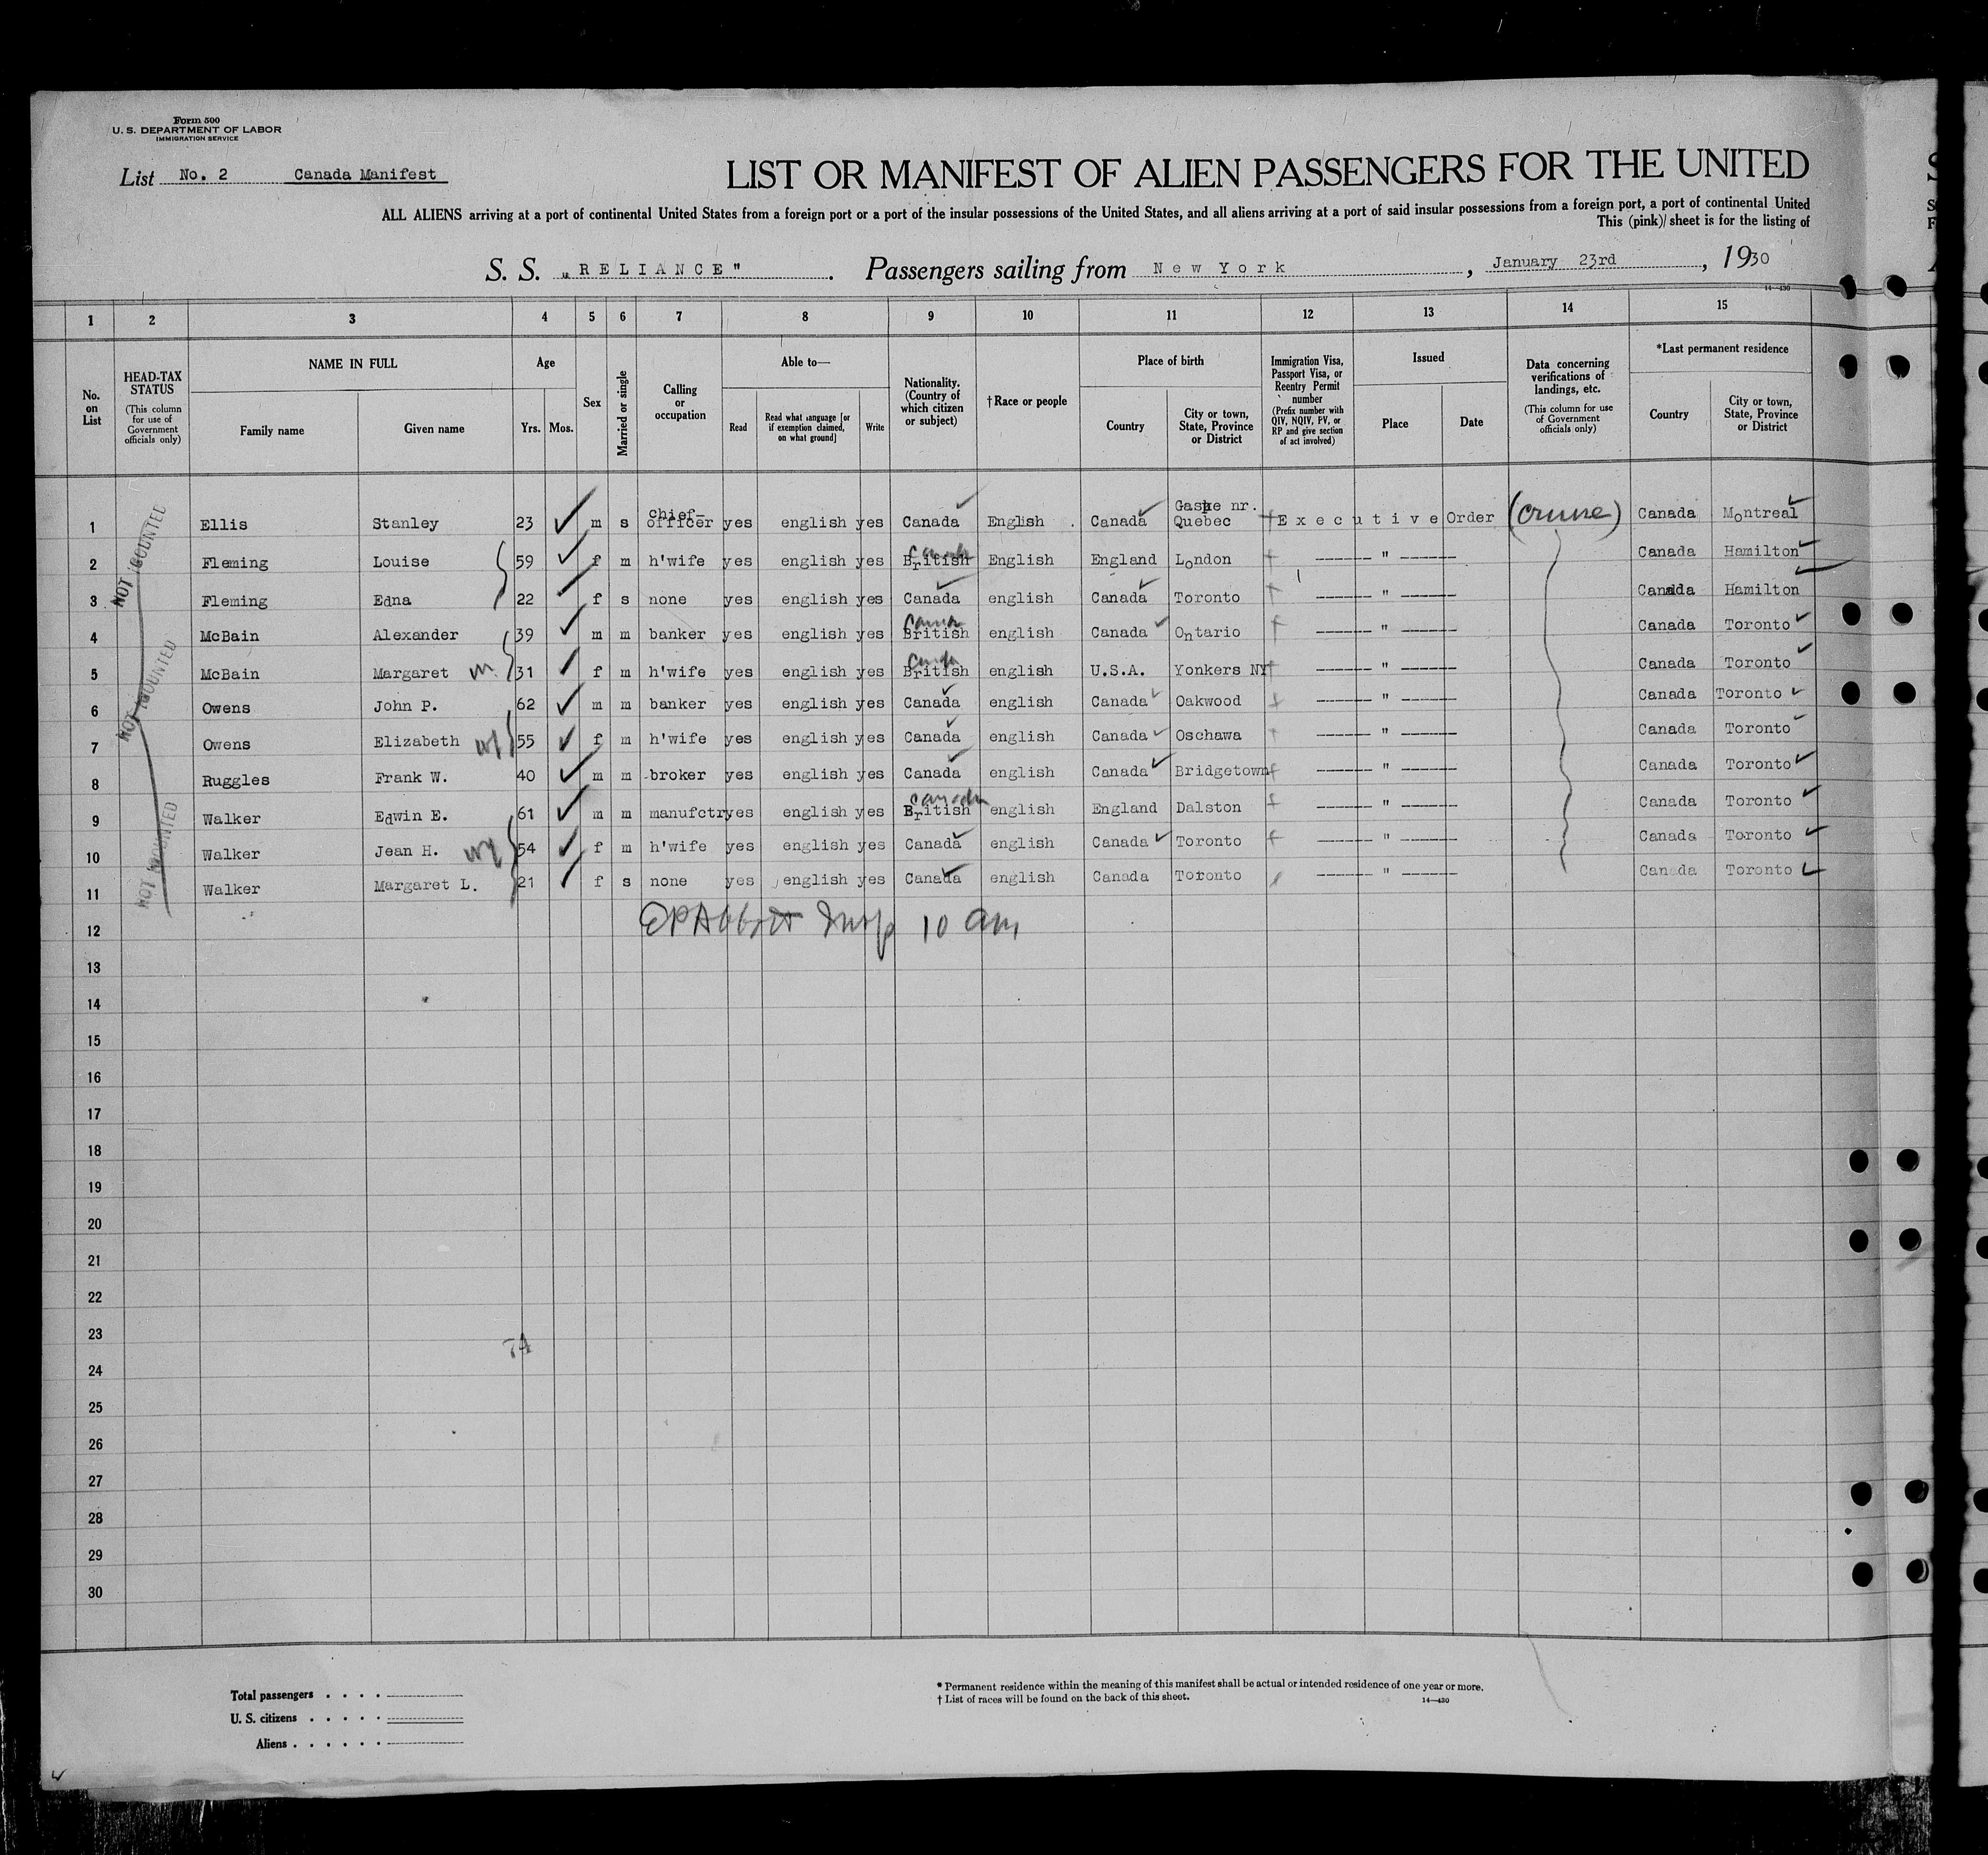 Form 500
U. S. DEPARTMENT OF LABOR
IMMIGRATION SERVICE
List No. 2 Canada Manifest
LIST OR MANIFEST OF ALIEN PASSENGERS FOR THE UNITED
ALL ALIENS arriving at a port of continental United States from a foreign port or a port of the insular possessions of the United States, and all aliens arriving at a port of said insular possessions from a foreign port, a port of continental United
This (pink) sheet is for the listing of
S. S. „RELIANCE" . Passengers sailing from New York , January 23rd , 1930
14—430
1 2 3 4 5 6 7 8 9 10 11 12 13 14 15
No. on List
HEAD-TAX STATUS
(This column for use of Government officials only)
NAME IN FULL
Family name
Given name
Age
Yrs. Mos.
Sex
Married or single
Calling or occupation
Able to—
Read
Read what language [or if exemption claimed, on what ground]
Write
Nationality. (Country of which citizen or subject)
†Race or people
Place of birth
Country
City or town, State, Province or District
Immigration Visa, Passport Visa, or Reentry Permit number
(Prefix number with QIV, NQIV, PV, or RP and give section of act involved)
Issued
Place
Date
Data concerning verifications of landings, etc.
(This column for use of Government officials only)
*Last permanent residence
Country
City or town, State, Province or District
NOT COUNTED
NOT COUNTED
NOT COUNTED
1 Ellis Stanley 23 m s chief-officer yes english yes Canada English Canada Gaspe nr. Quebec Executive Order Canada Montreal
2 Fleming Louise 59 f m h'wife yes english yes British Canada English England London " Canada Hamilton
3 Fleming Edna 22 f s none yes english yes Canada english Canada Toronto " Canada Hamilton
4 McBain Alexander 39 m m banker yes english yes British english Canada Ontario " Canada Toronto
5 McBain Margaret 31 f m h'wife yes english yes British english U.S.A. Yonkers NY " Canada Toronto
6 Owens John P. 62 m m banker yes english yes Canada english Canada Oakwood " Canada Toronto
7 Owens Elizabeth 55 f m h'wife yes english yes Canada english Canada Oschawa " Canada Toronto
8 Ruggles Frank W. 40 m m broker yes english yes Canada english Canada Bridgetown " Canada Toronto
9 Walker Edwin E. 61 m m manufctr yes english yes British Canada english England Dalston " Canada Toronto
10 Walker Jean H. 54 f m h'wife yes english yes Canada english Canada Toronto " Canada Toronto
11 Walker Margaret L. 21 f s none yes english yes Canada english Canada Toronto " Canada Toronto
12 Insp 10 am
13
14
15
16
17
18
19
20
21
22
23
24
25
26
27
28
29
30
Total passengers . . . .
U. S. citizens . . . . .
Aliens . . . . . .
* Permanent residence within the meaning of this manifest shall be actual or intended residence of one year or more.
† List of races will be found on the back of this sheet.
14—430